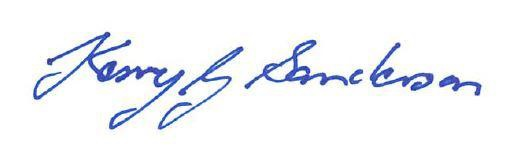 Kerry G Sanderson